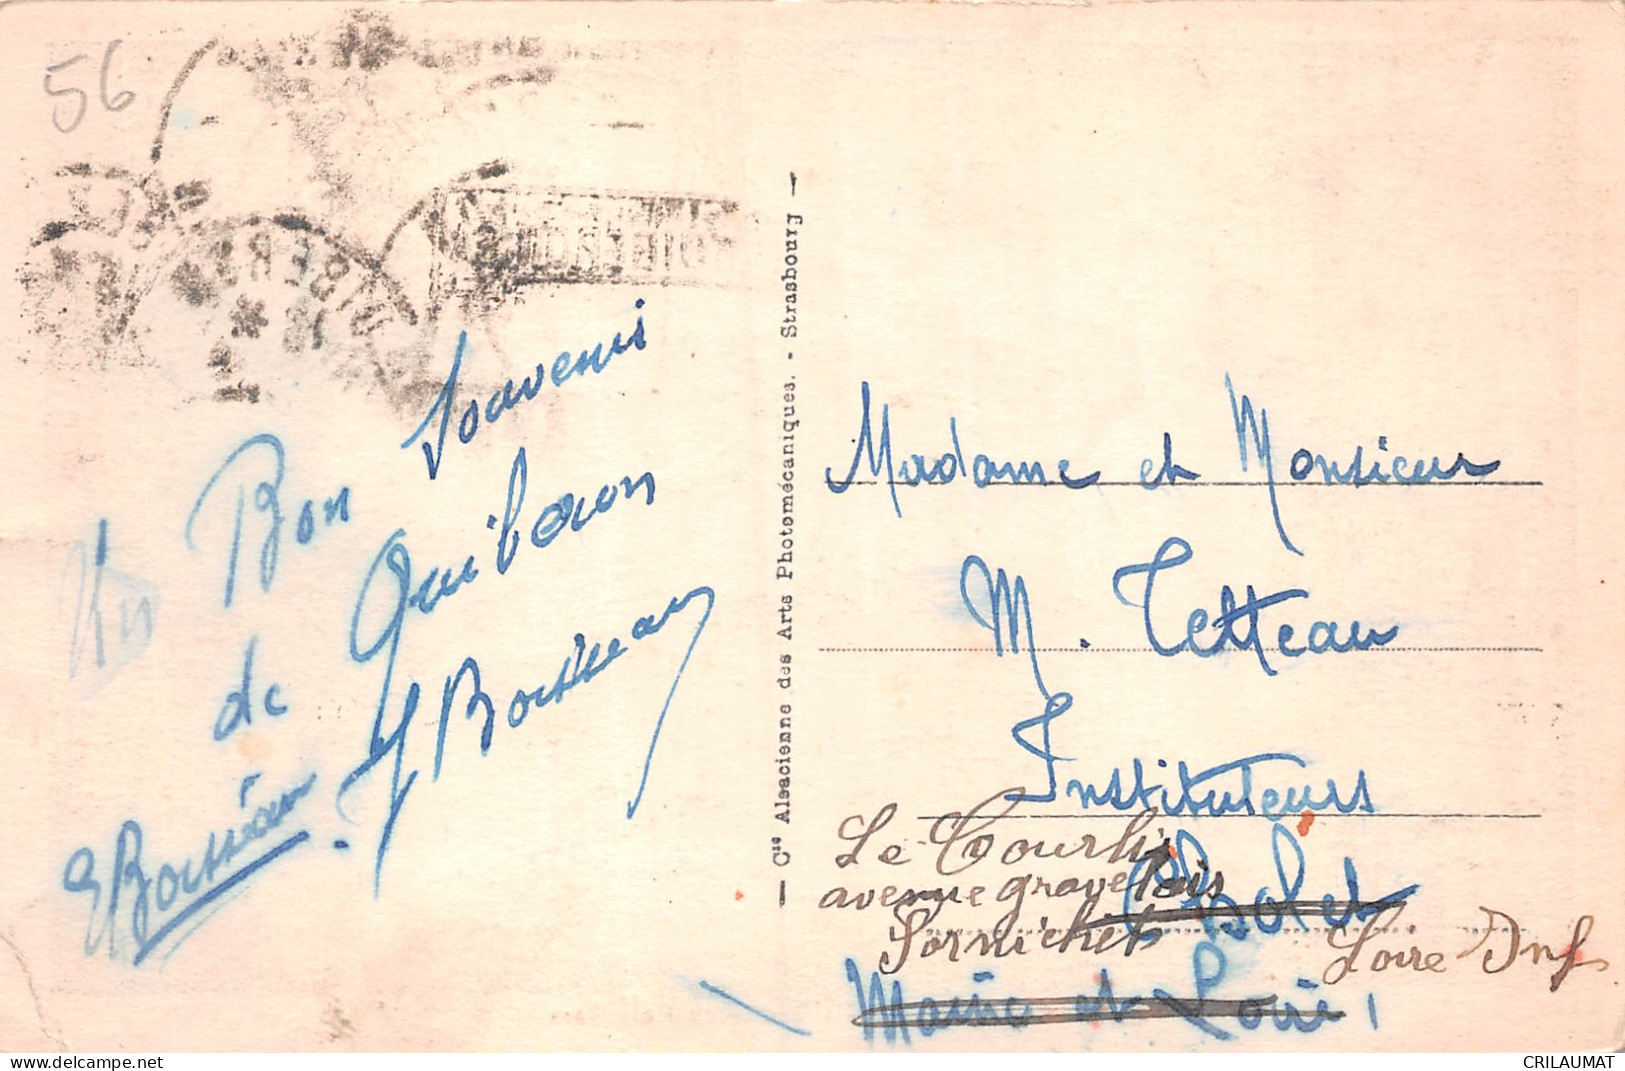 56
Un Bon Souvenir
de Quiberon
Boisseau
EBoisseau
— Cie Alsacienne des Arts Photomécaniques. - Strasbourg —
Madame et Monsieur
M. Tetteau
Instituteurs
Cholet
Maine et Loire
Le Courlis
avenue gravelais
Pornichet Loire Inf
CRILAUMAT